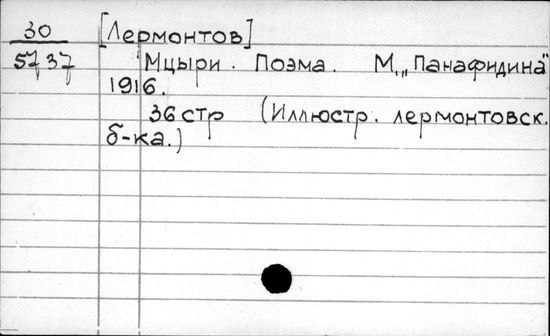 30 [Лермонтов]
5737 Мцыри. Поэма. М., „Панафидина"
1916.
36 стр (Иллюстр. лермонтовск.
б-ка.)